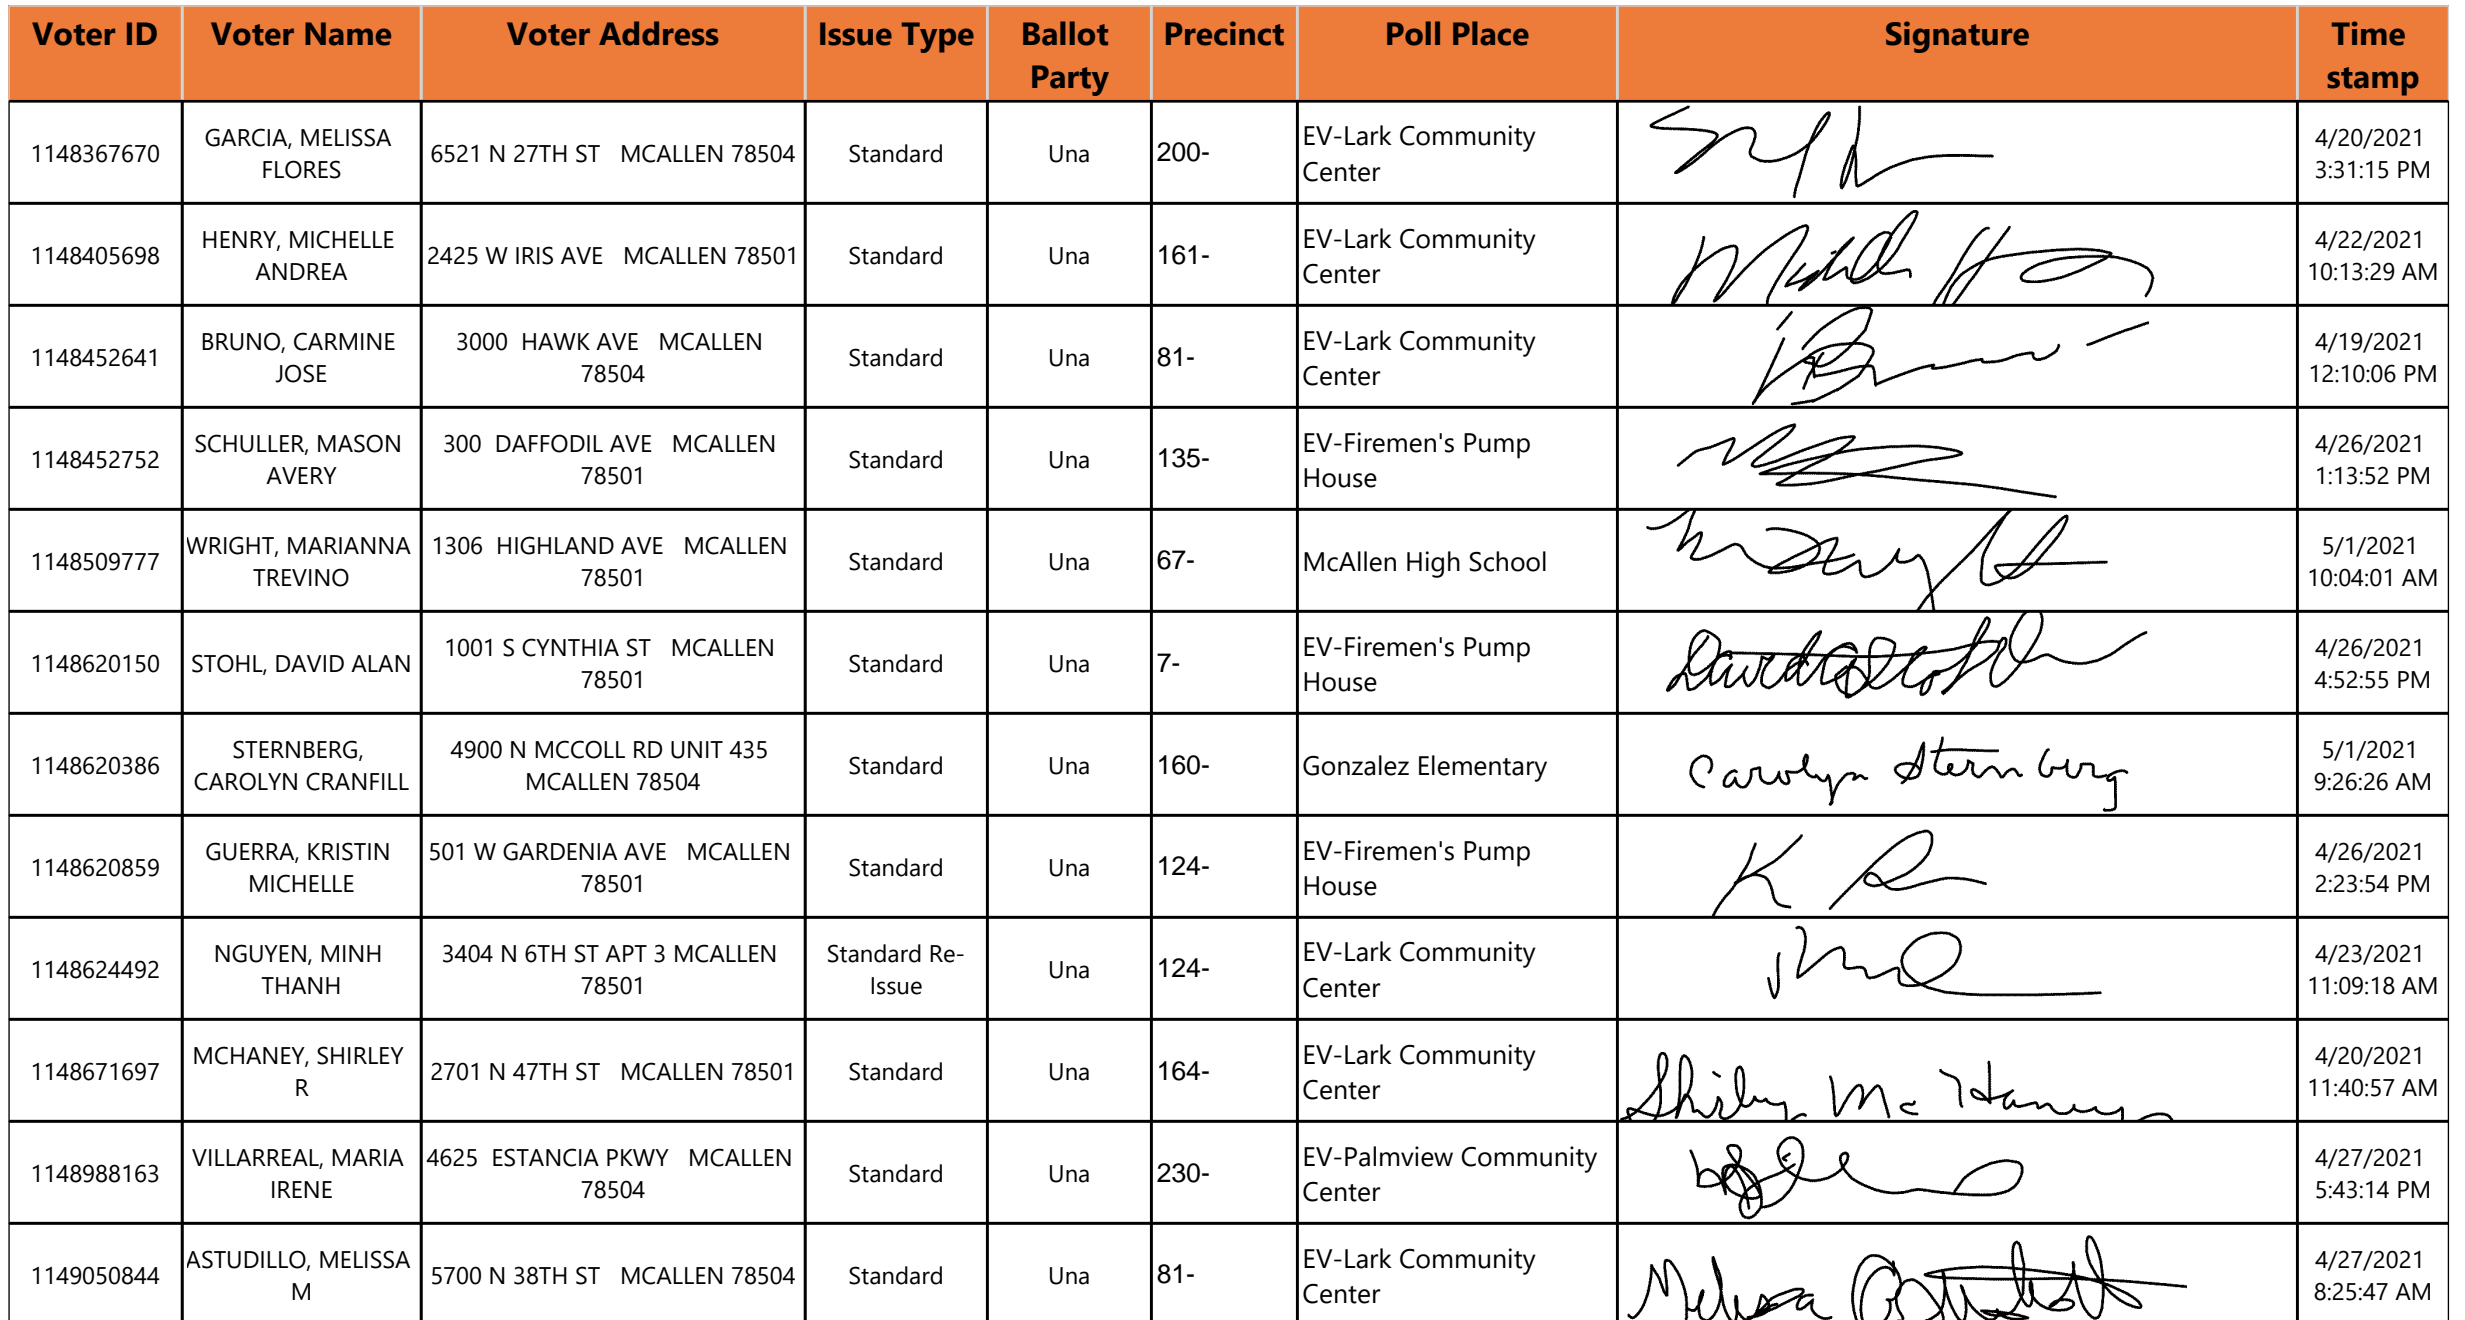 Voter ID Voter Name Voter Address Issue Type Ballot Party Precinct Poll Place Signature Time stamp
1148367670 GARCIA, MELISSA FLORES 6521 N 27TH ST MCALLEN 78504 Standard Una 200- EV-Lark Community Center 4/20/2021 3:31:15 PM
1148405698 HENRY, MICHELLE ANDREA 2425 W IRIS AVE MCALLEN 78501 Standard Una 161- EV-Lark Community Center 4/22/2021 10:13:29 AM
1148452641 BRUNO, CARMINE JOSE 3000 HAWK AVE MCALLEN 78504 Standard Una 81- EV-Lark Community Center 4/19/2021 12:10:06 PM
1148452752 SCHULLER, MASON AVERY 300 DAFFODIL AVE MCALLEN 78501 Standard Una 135- EV-Firemen's Pump House 4/26/2021 1:13:52 PM
1148509777 WRIGHT, MARIANNA TREVINO 1306 HIGHLAND AVE MCALLEN 78501 Standard Una 67- McAllen High School 5/1/2021 10:04:01 AM
1148620150 STOHL, DAVID ALAN 1001 S CYNTHIA ST MCALLEN 78501 Standard Una 7- EV-Firemen's Pump House 4/26/2021 4:52:55 PM
1148620386 STERNBERG, CAROLYN CRANFILL 4900 N MCCOLL RD UNIT 435 MCALLEN 78504 Standard Una 160- Gonzalez Elementary Carolyn Sternberg 5/1/2021 9:26:26 AM
1148620859 GUERRA, KRISTIN MICHELLE 501 W GARDENIA AVE MCALLEN 78501 Standard Una 124- EV-Firemen's Pump House 4/26/2021 2:23:54 PM
1148624492 NGUYEN, MINH THANH 3404 N 6TH ST APT 3 MCALLEN 78501 Standard Re-Issue Una 124- EV-Lark Community Center 4/23/2021 11:09:18 AM
1148671697 MCHANEY, SHIRLEY R 2701 N 47TH ST MCALLEN 78501 Standard Una 164- EV-Lark Community Center Shirley McHaney 4/20/2021 11:40:57 AM
1148988163 VILLARREAL, MARIA IRENE 4625 ESTANCIA PKWY MCALLEN 78504 Standard Una 230- EV-Palmview Community Center 4/27/2021 5:43:14 PM
1149050844 ASTUDILLO, MELISSA M 5700 N 38TH ST MCALLEN 78504 Standard Una 81- EV-Lark Community Center Melissa 4/27/2021 8:25:47 AM